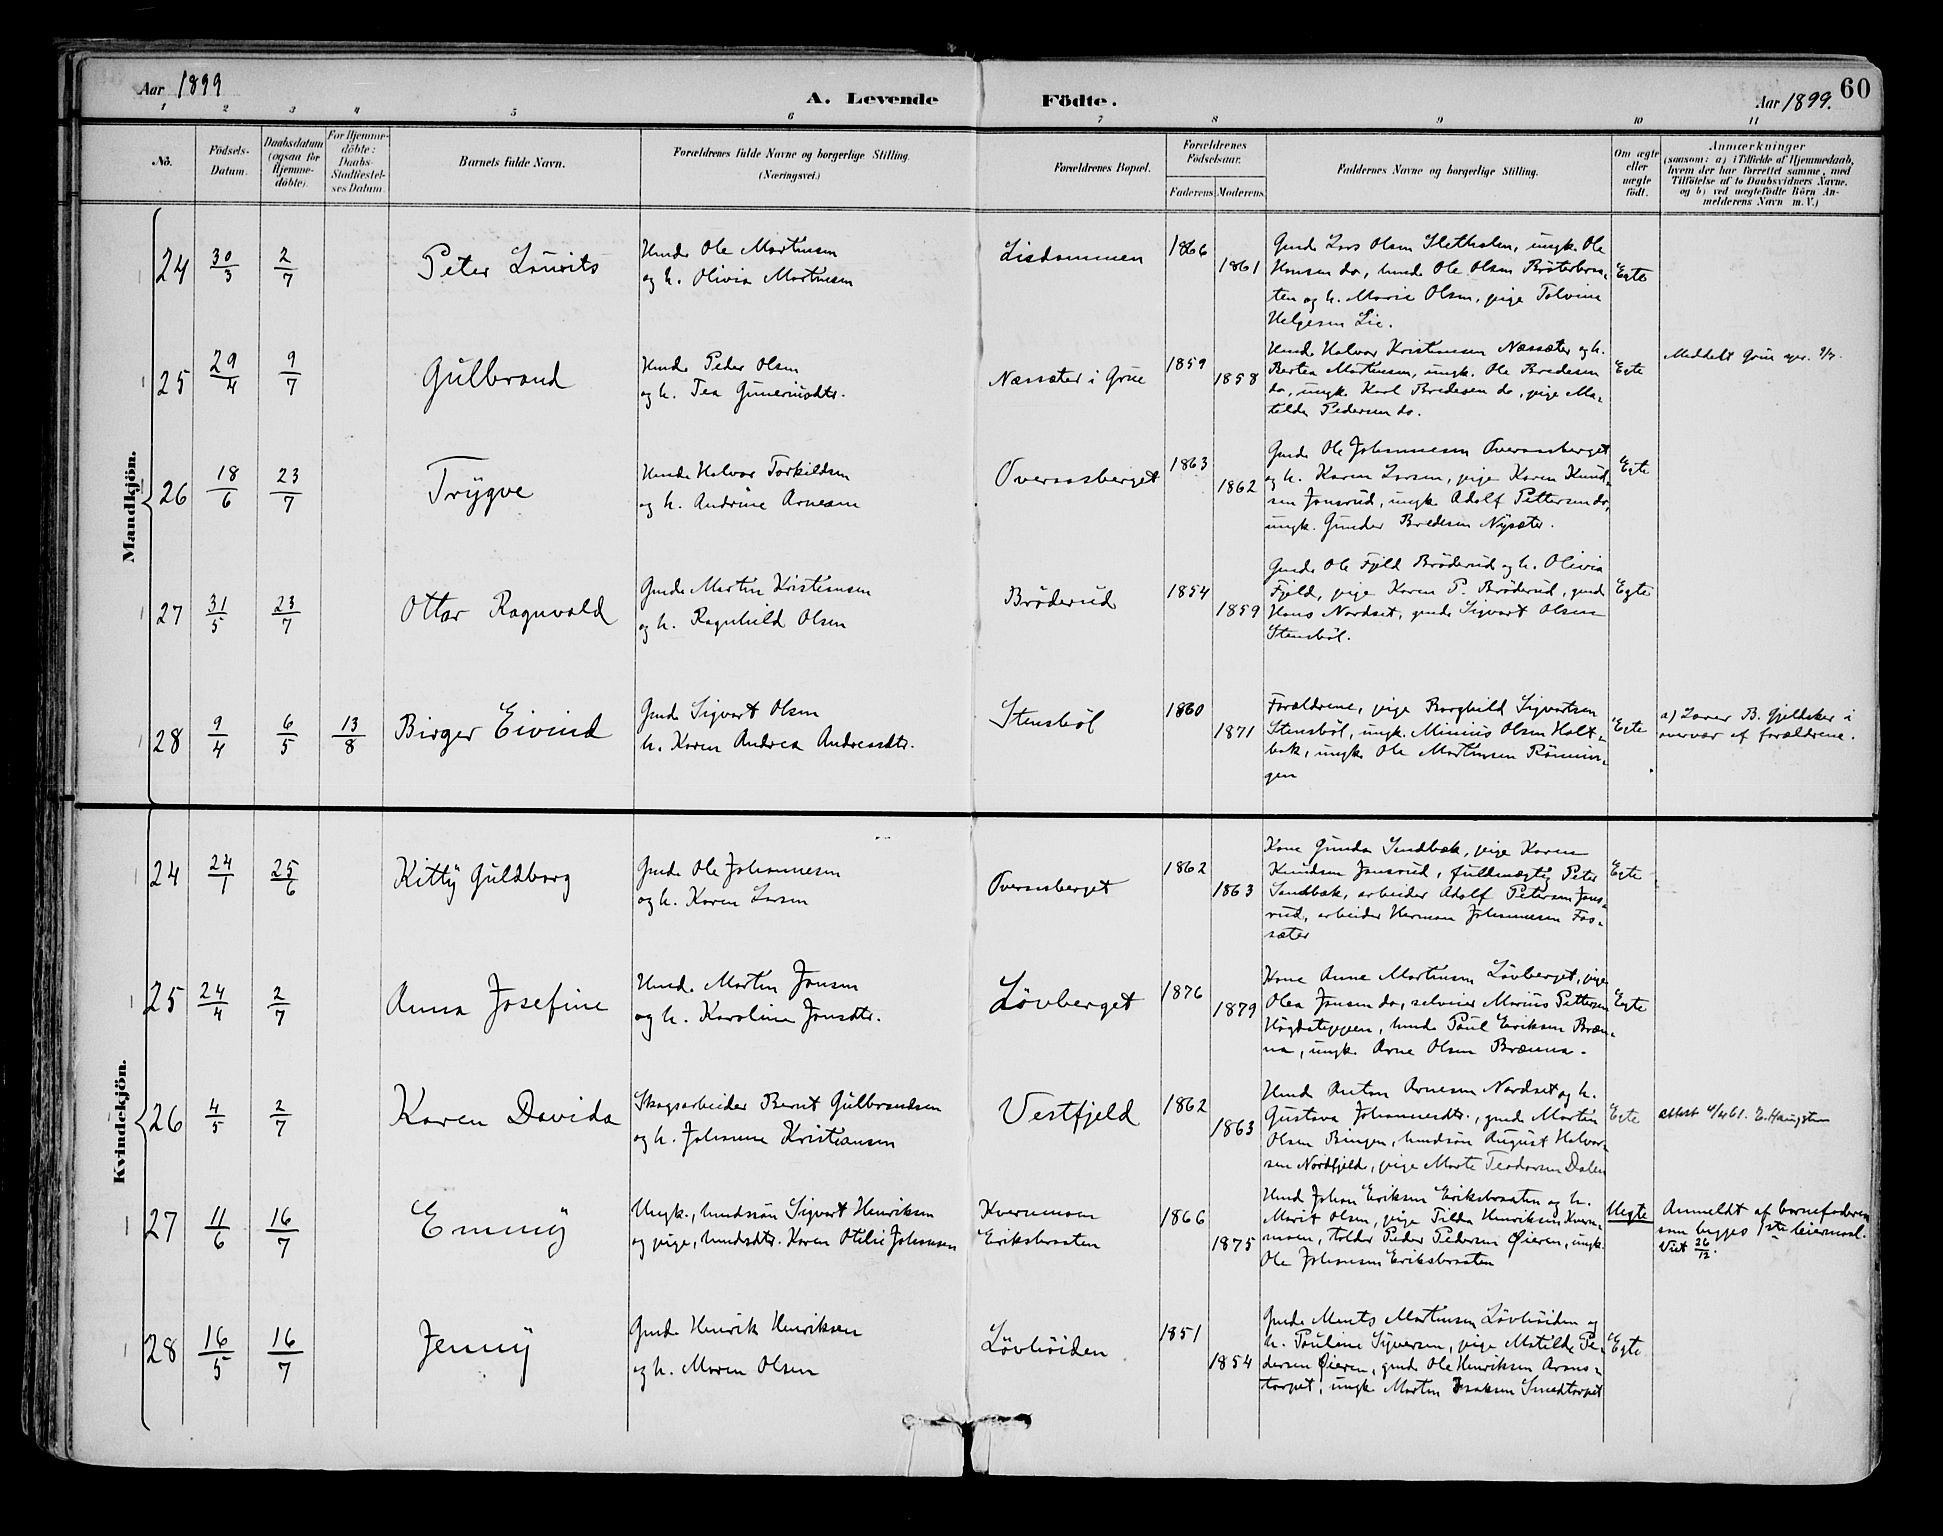 Aar 1899
A. Levende Födte.
Aar 1899.
60
1 2 3 4 5 6 7 8 9 10 11
No.
Födsels-Datum.
Daabsdatum (ogsaa for Hjemme-döbte).
For Hjemme-döbte: Daabs-Stadfæstel-ses Datum.
Barnets fulde Navn.
Forældrenes fulde Navne og borgerlige Stilling.
(Næringsvei.)
Forældrenes Bopæl.
Forældrenes Födselsaar.
Faderens Moderens
Faddernes Navne og borgerlige Stilling.
Om ægte eller uægte födt.
Anmærkninger
(saasom: a) i Tilfælde af Hjemmedaab,
hvem der har forrettet samme, med
Tilföielse af to Daabsvidners Navne.
og b) ved uegtefödte Börn An-
melderens Navn m. V.)
Mandkjön.
24 30/3 2/7 Peter Laurits
Husmd. Ole Martinsen
og h. Olivia Martinsen
Lisdammen
1866 1861
Gmd. Lars Olsen Slettholen, ungk. Ole
Hansen do, husmd. Ole Olsen Bröterbraa-
ten og h. Marie Olsen, pige Tolvine
Helgesen Lie.
Egte
25 29/4 9/7 Gulbrand
Husmd. Peder Olsen
og h. Tea Guneriusdtr.
Næssæter i Grue
1859 1858
Husmd. Halvor Kristiansen Næssæter og h.
Bertea Martinsen, ungk. Ole Bredesen
do, ungk. Karl Bredesen do, pige Ma-
tilde Pedersen do.
Egte
Meddelt Grue 9/7.
26 18/6 23/7 Trygve
Husmd. Halvor Torkildsen
og h. Andrine Arnesen
Overaasberget
1863 1862
Gmd. Ole Johannesen Overaasberget
og h. Karen Larsen, pige Karen Knud-
sen Jansrud, ungk. Adolf Pettersen do,
ungk. Gunder Bredesen Nysæter.
Egte
27 31/5 23/7 Ottar Ragnvald
Gmd. Martin Kristiansen
og h. Ragnhild Olsen
Bröderud
1854 1859
Gmd. Ole Fjeld Bröderud og h. Olivia
Fjeld, pige Karen P. Bröderud, gmd.
Hans Nordset, gmd. Sigvart Olsen
Stensböl.
Egte
28 9/4 6/5 13/8 Birger Eivind
Gmd. Sigvart Olsen
h. Karen Andrea Andreasdtr.
Stensböl
1860 1871
Forældrene, pige Borghild Sigvartsen
Stensböl, ungk. Minius Olsen Holt-
bak, ungk. Ole Martinsen Rönnin-
gen
Egte
a) Lærer B. Gjeldaker i
overvær af forældrene.
Kvindekjön.
24 24/1 25/6 Kitty Guldborg
Gmd. Ole Johannesen
og h. Karen Larsen
Overaasberget
1862 1863
Kone Gunda Sandbæk, pige Karen
Knudsen Jansrud, fuldmægtig Peter
Sandbæk, arbeider Adolf Petersen Jans-
rud, arbeider Herman Johannesen Fos-
sæter
Egte
25 24/4 2/7 Anna Josefine
Husmd. Martin Jonsen
og h. Karoline Jonsdtr.
Lövberget
1876 1879
Kone Anne Martinsen Lövberget, pige
Olea Jonsen do, selveier Marius Pettersen
Högdateppen, husmd. Paul Eriksen Bræn-
na, ungk. Arne Olsen Brænna.
Egte
26 4/5 2/7 Karen Davida
Skogsarbeider Bernt Gulbrandsen
og h. Johanne Kristiansen
Vestfjeld
1862 1863
Husmd. Anton Arnesen Nordset og h.
Gustava Johannesdtr., gmd. Martin
Olsen Bingen, husmdsön August Halvor-
sen Nordfjeld, pige Marte Teodorsen Dalen
Egte
attest 4/4 61. E. Haugsten
27 11/6 16/7 Emmy
Ungk., husmdssön Sigvart Henriksen
og pige, husmdsdtr. Karen Otelie Johansen
Kvernmoen
Eriksbraaten
1866 1875
Husmd. Johan Eriksen Eriksbraaten og h.
Marit Olsen, pige Tilda Henriksen Kvern-
moen, tolder Peder Pedersen Øieren, ungk.
Ole Johansen Eriksbraaten
Uegte
Anmeldt af barnefaderen
som begges 1ste leiermaal.
Viet 26/12.
28 16/5 16/7 Jenny
Gmd. Henrik Henriksen
og h. Maren Olsen
Lövhöiden
1851 1854
Gmd. Ments Martinsen Lövhöiden og
h. Pauline Syversen, pige Matilde Pe-
dersen Øieren, gmd. Ole Henriksen Arons-
torpet, ungk. Martin Isaksen Smedtorpet
Egte